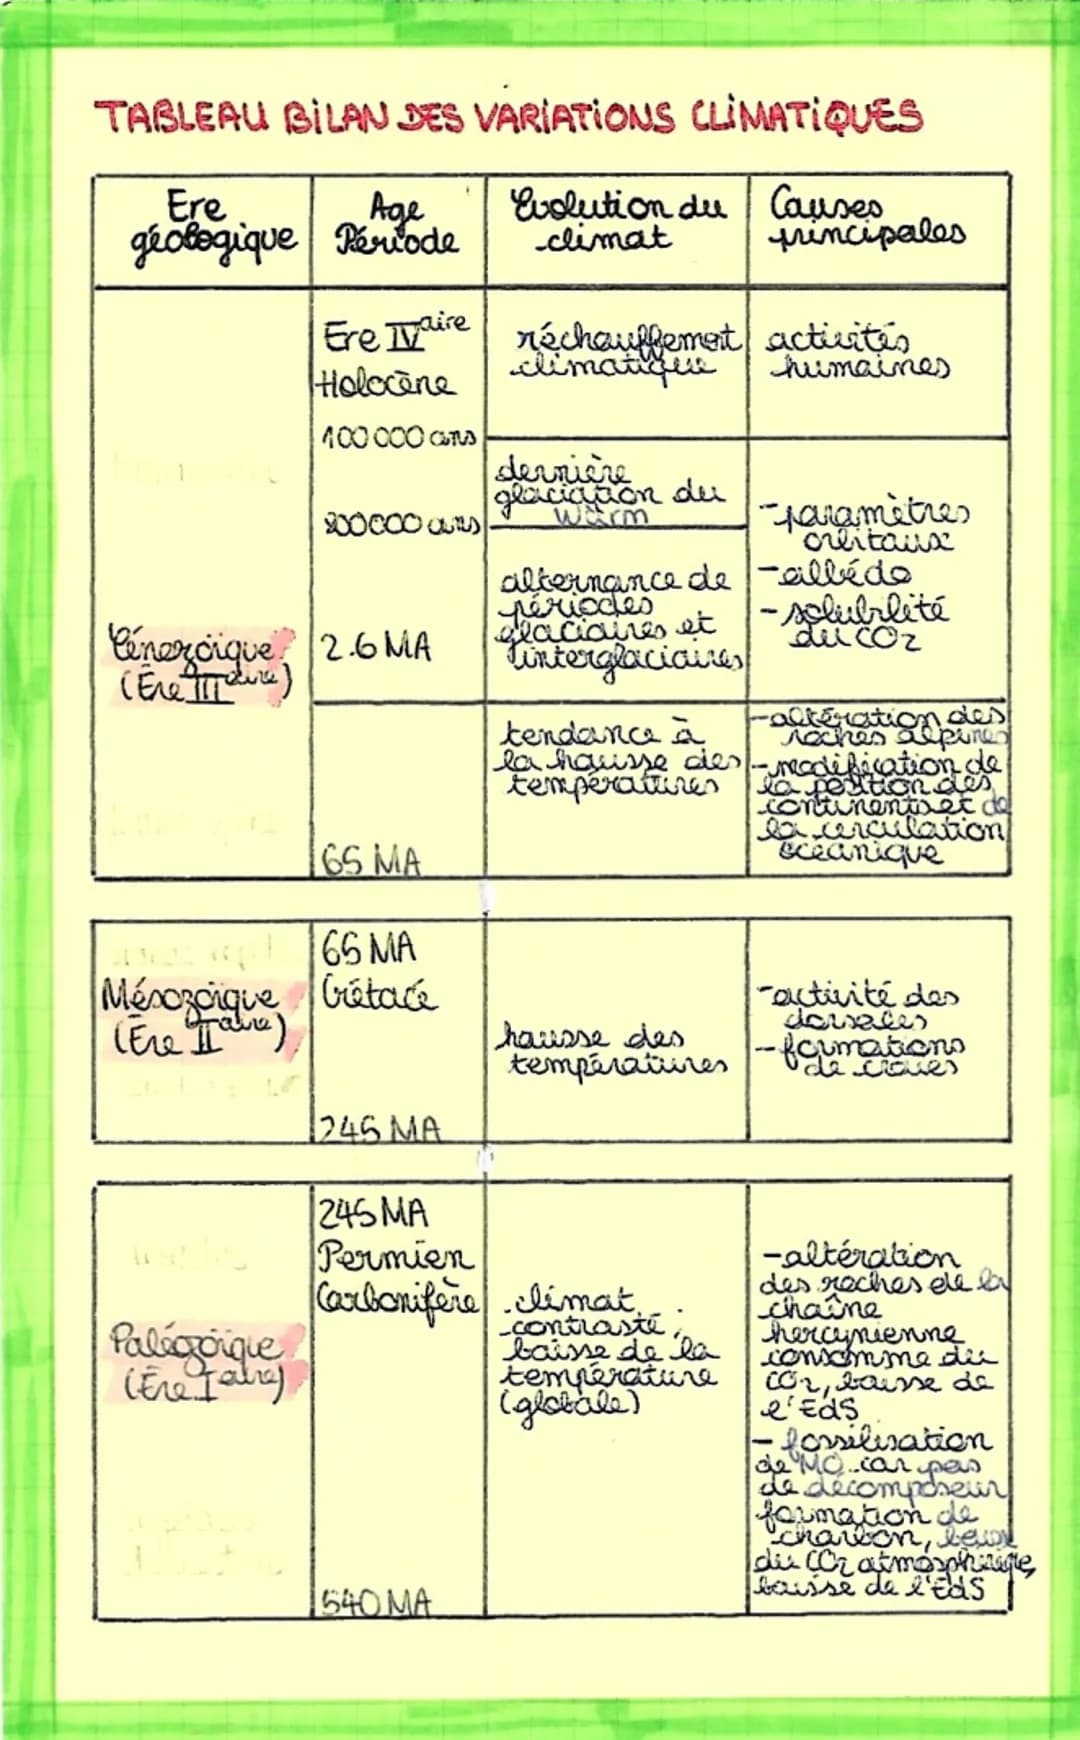 TABLEAU BILAN DES VARIATIONS CLIMATIQUES
Ere
géologique
Age
Période
Evolution du
climat
Causes
principales
Ere IVaire
Holocène
100 000 ans
800 000 ans
2.6 MA
65 MA
Cénozoïque
(Ere IIIaire)
réchauffement
climatique
activités
humaines
dernière
glaciation du
Würm
alternance de
périodes
glaciaires et
interglaciaires
-paramètres
orbitaux
-albédo
-solubilité
du CO2
tendance à
la hausse des
températures
-altération des
roches alpines
-modification de
la position des
continents et de
la circulation
océanique
Mésozoïque
(Ere IIaire)
65 MA
Crétacé
245 MA
hausse des
températures
-activité des
dorsales
-formations
de craies
Paléozoïque
(Ere Iaire)
245 MA
Permien
Carbonifère
540 MA
climat
contrasté,
baisse de la
température
(globale)
-altération
des roches de la
chaîne
hercynienne
consomme du
CO2, baisse de
l'EdS
- fossilisation
de MO car pas
de décomposeur
formation de
charbon, baisse
du CO2 atmosphérique,
baisse de l'EdS